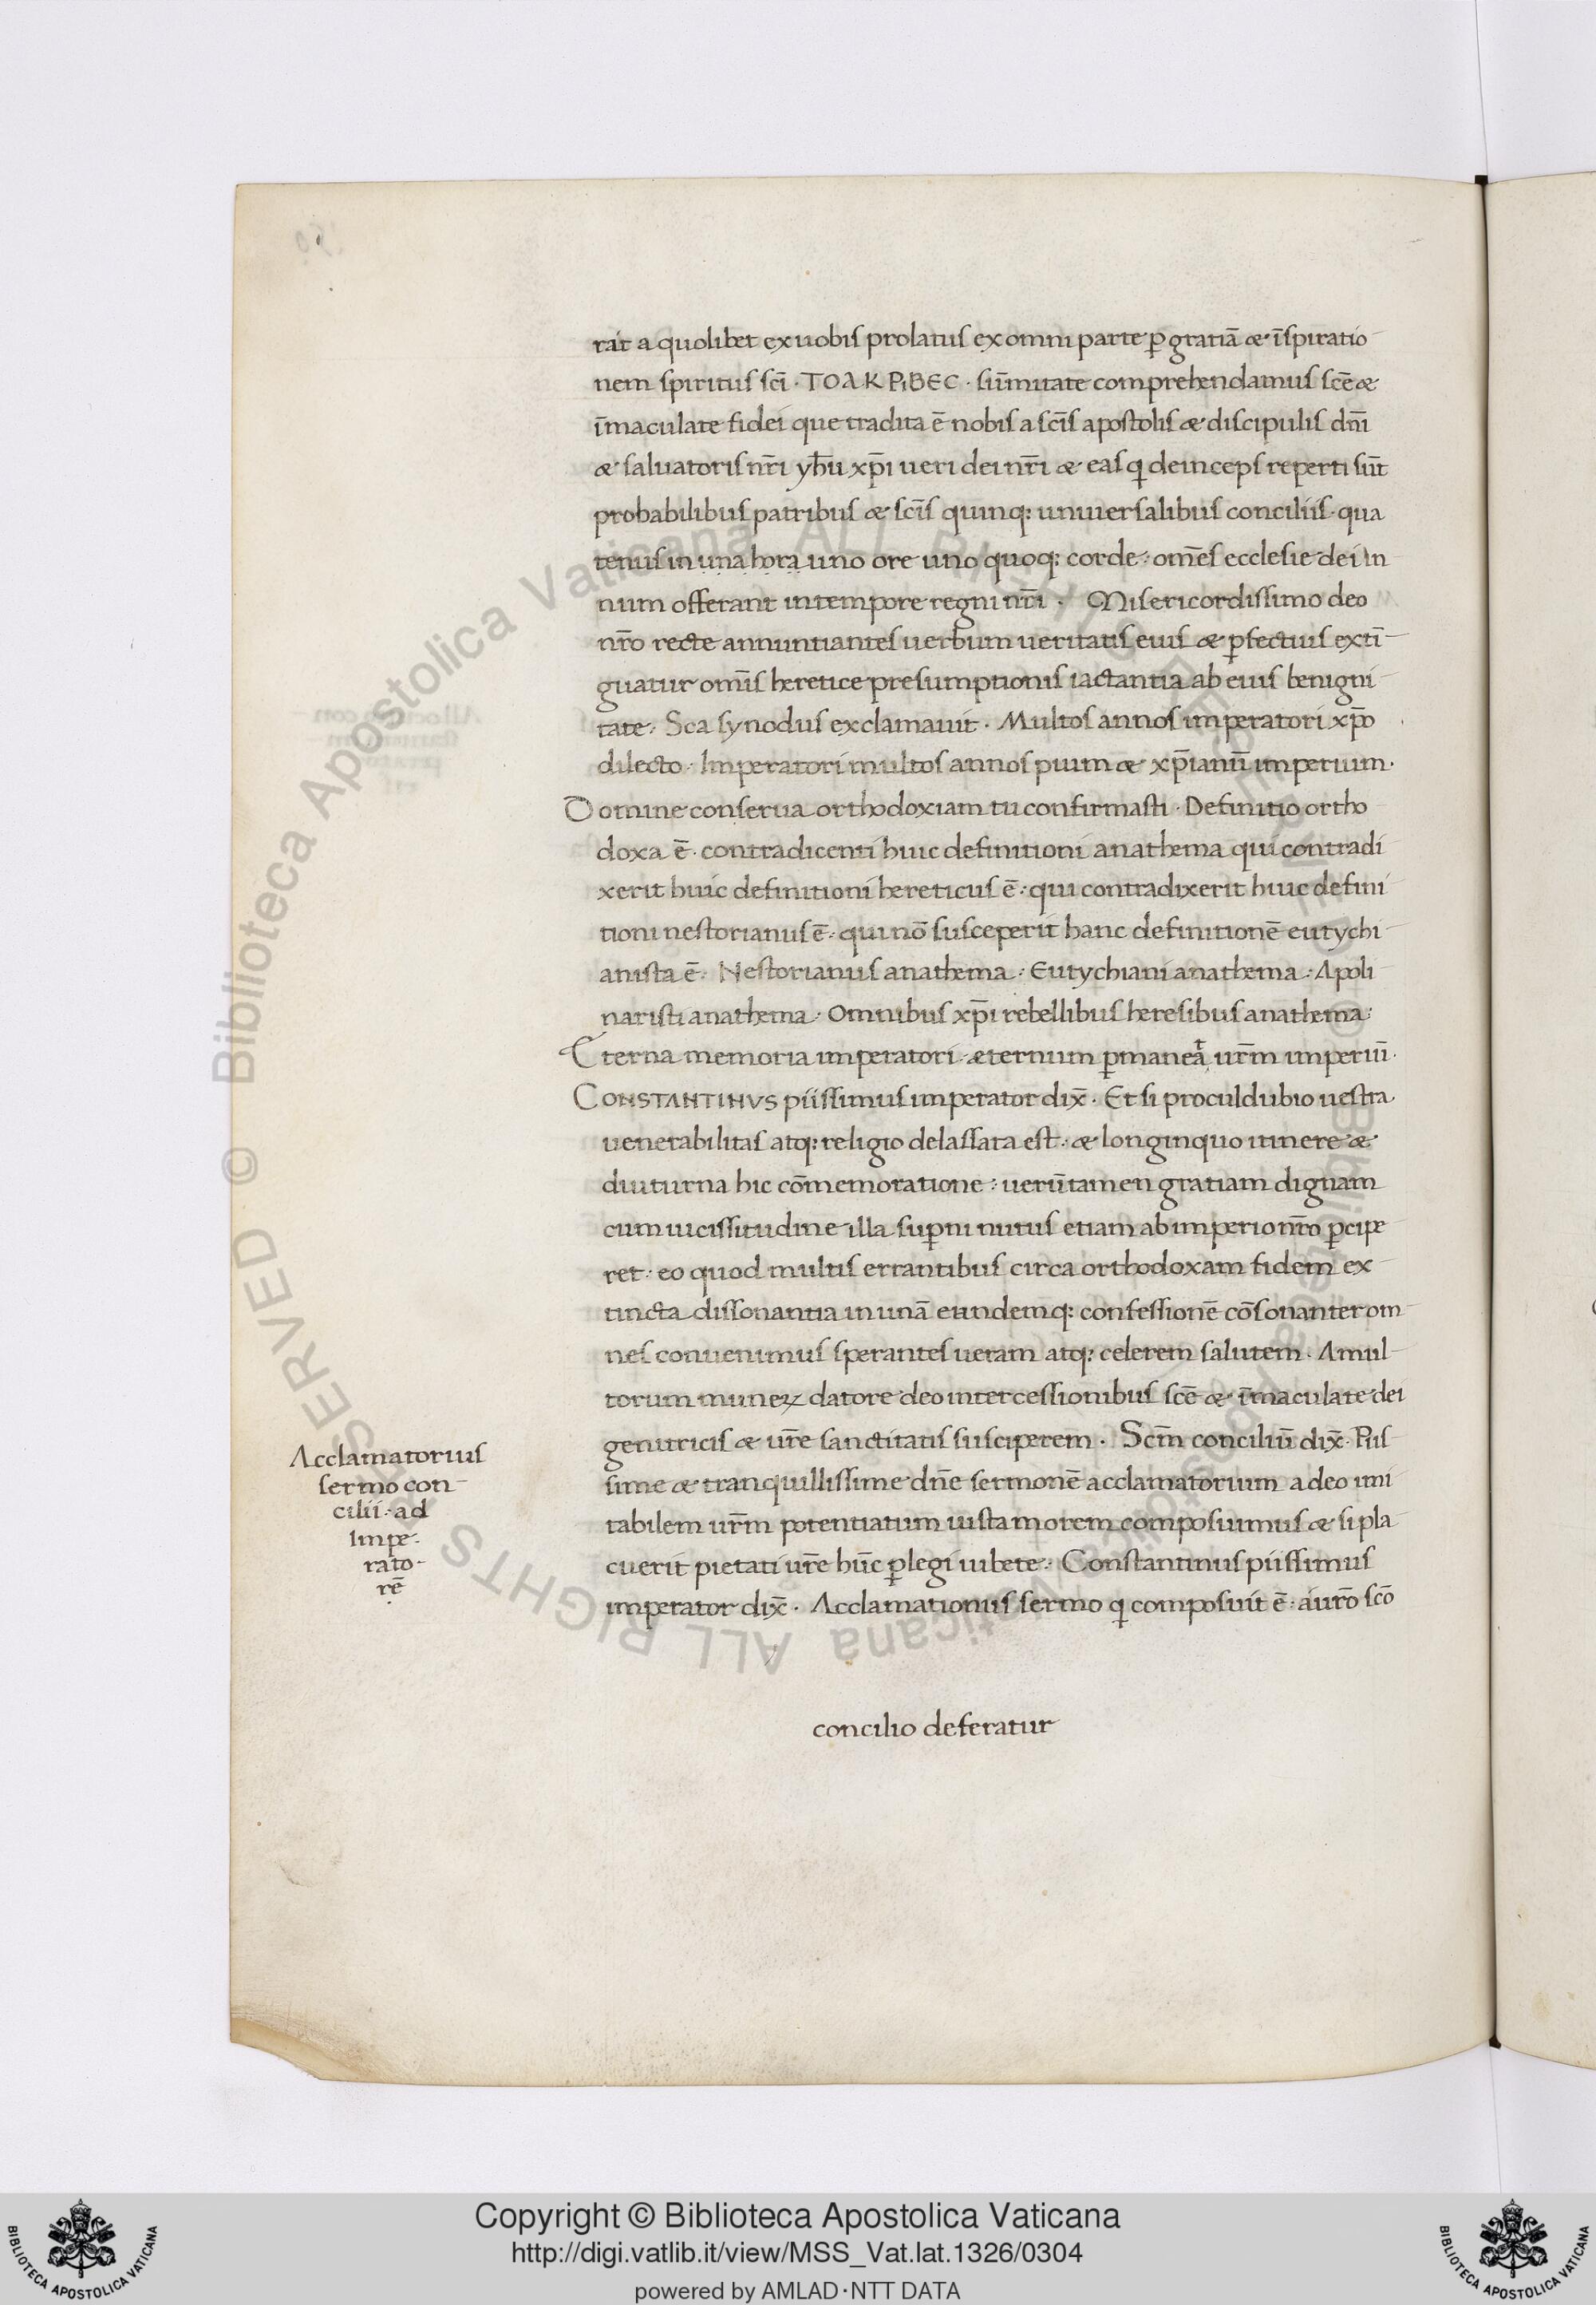 rat a quolibet ex uobis prolatus ex omni parte ꝑ gratiā & īspiratio
nem spiritus sc̄i · TOAKPIBEC · sūmitate comprehendamus sc̄e &
īmaculate fidei que tradita ē nobis a sc̄is apostolis & discipulis dn̄i
& saluatoris nr̄i yh̄u xp̄i ueri dei nr̄i & eas q deinceps reperti sūt
probabilibus patribus & sc̄is quinq; uniuersalibus conciliis · qua
tenus in una hora uno ore uno quoq; corde · om̄es ecclesie dei in
num offerant in tempore regni nr̄i · Misericordissimo deo
nr̄o recte annuntiantes uerbum ueritatis eius & ꝑfectius extī
guatur om̄is heretice presumptionis iactantia ab eius benigni
tate · Sca synodus exclamauit · Multos annos imperatori xp̄o
dilecto · Imperatori multos annos pium & xp̄ianū imperium ·
Domine conserua orthodoxiam tu confirmasti · Definitio ortho
doxa ē · contradicenti huic definitioni anathema qui contradi
xerit huic definitioni hereticus ē · qui contradixerit huic defini
tioni nestorianus ē · qui nō susceperit hanc definitionē eutychi
anista ē · Nestorianus anathema · Eutychiani anathema · Apoli
naristi anathema · Omnibus xp̄i rebellibus heresibus anathema ·
Eterna memoria imperatori · æternum ꝑmaneat ur̄m imperiū ·
CONSTANTINVS piissimus imperator dix̄ · Et si proculdubio uestra
uenerabilitas atq; religio delassata est · & longinquo itinere &
diuturna hic cōmemoratione · uerūtamen gratiam dignam
cum uicissitudine illa suꝑni nutus etiam ab imperio nr̄o ꝑcipe
ret · eo quod multis errantibus circa orthodoxam fidem ex
tincta dissonantia in unā eundemq; confessionē cōsonanter om
nes conuenimus sperantes ueram atq; celerem salutem · A mul
torum muneꝝ datore deo intercessionibus sc̄e & īmaculate dei
genitricis & ur̄e sanctitatis susciperem · Scm̄ conciliū dix̄ · Piis
sime & tranquillissime dn̄e sermonē acclamatorium a deo imi
tabilem ur̄m potentiatum iusta morem composuimus & si pla
cuerit pietati ur̄e hūc ꝑlegi iubete · Constantinus piissimus
imperator dix̄ · Acclamationis sermo q composuit ē · a ur̄o sc̄o
concilio deferatur
Acclamatorius
sermo con
cilii · ad
Impe
rato
rē
Copyright © Biblioteca Apostolica Vaticana
http://digi.vatlib.it/view/MSS_Vat.lat.1326/0304
powered by AMLAD·NTT DATA
BIBLIOTECA APOSTOLICA VATICANA
BIBLIOTECA APOSTOLICA VATICANA
© Biblioteca Apostolica Vaticana ALL RIGHTS RESERVED
© Biblioteca Apostolica Vaticana ALL RIGHTS RESERVED